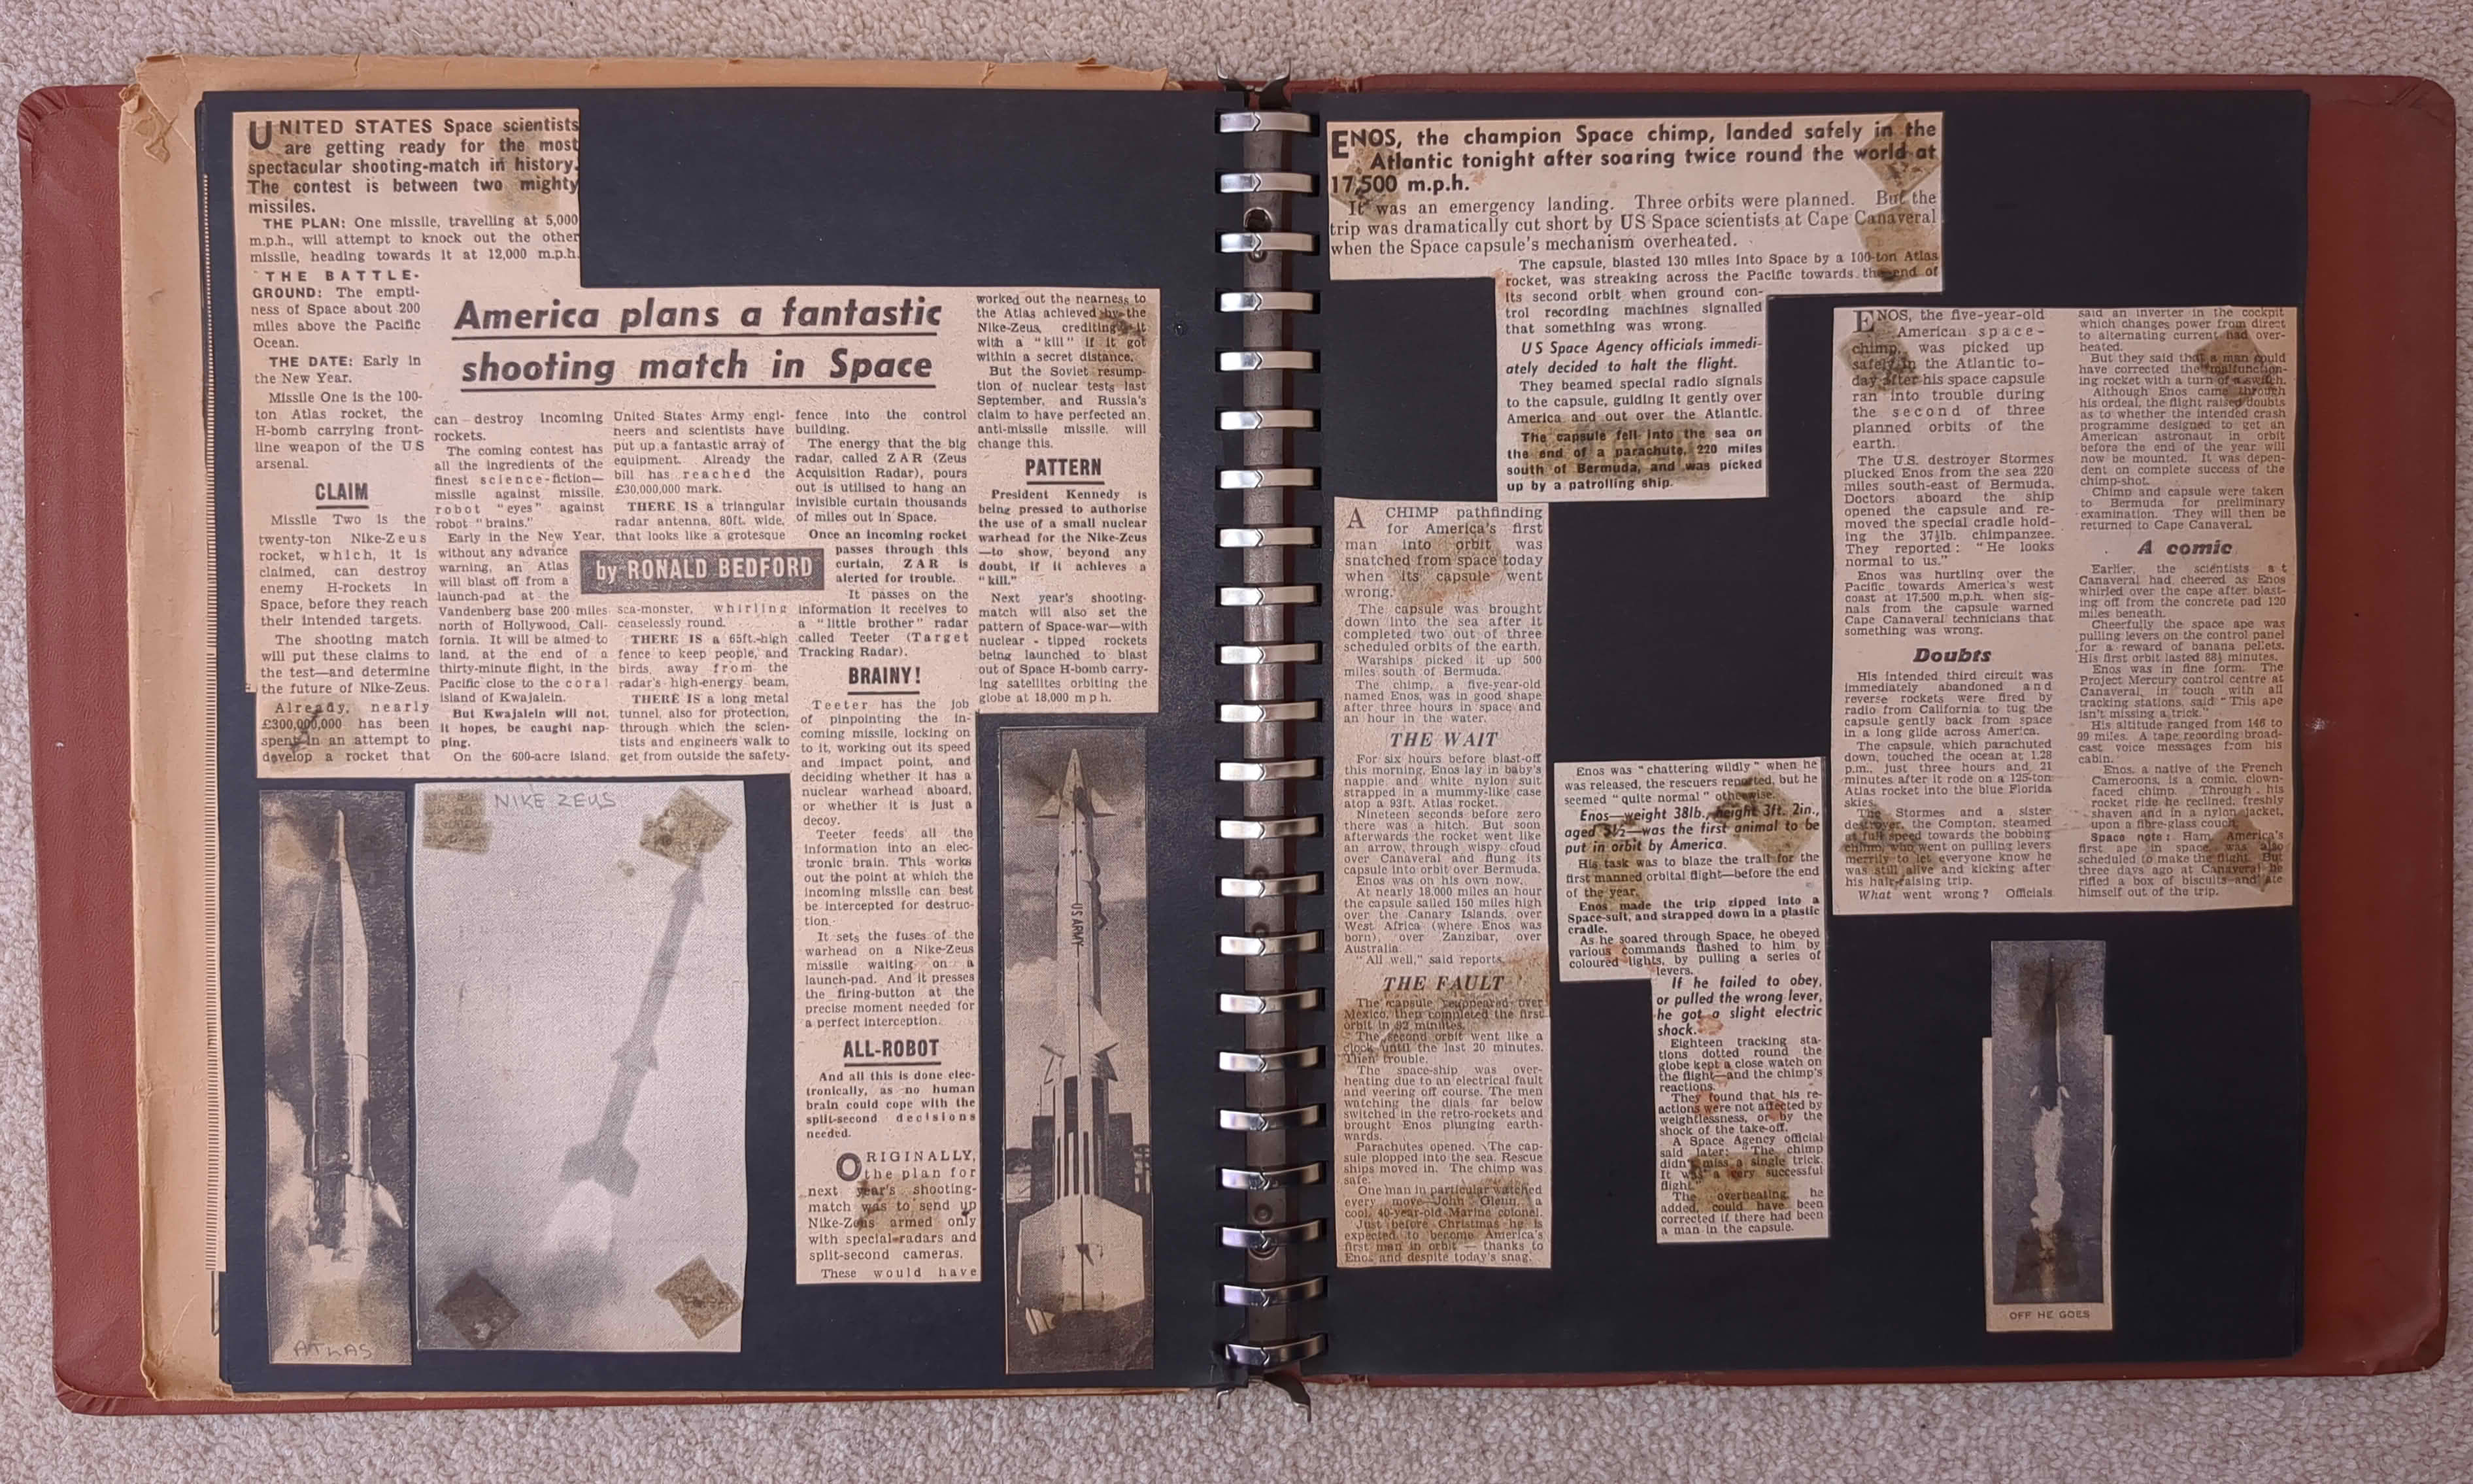 UNITED STATES Space scientists
are getting ready for the most
spectacular shooting-match in history.
The contest is between two mighty
missiles.
THE PLAN: One missile, travelling at 5,000
m.p.h., will attempt to knock out the other
missile, heading towards it at 12,000 m.p.h.
THE BATTLE-
GROUND: The empti-
ness of Space about 200
miles above the Pacific
Ocean.
THE DATE: Early in
the New Year.
Missile One is the 100-
ton Atlas rocket, the
H-bomb carrying front-
line weapon of the US
arsenal.
CLAIM
Missile Two is the
twenty-ton Nike-Zeus
rocket, which, it is
claimed, can destroy
enemy H-rockets in
Space, before they reach
their intended targets.
The shooting match
will put these claims to
the test—and determine
the future of Nike-Zeus.
Already, nearly
£300,000,000 has been
spent in an attempt to
develop a rocket that
America plans a fantastic
shooting match in Space
can destroy incoming
rockets.
The coming contest has
all the ingredients of the
finest science-fiction—
missile against missile,
robot "eyes" against
robot "brains."
Early in the New Year,
without any advance
warning, an Atlas
will blast off from a
launch-pad at the
Vandenberg base 200 miles
north of Hollywood, Cali-
fornia. It will be aimed to
land, at the end of a
thirty-minute flight, in the
Pacific close to the coral
island of Kwajalein.
But Kwajalein will not,
it hopes, be caught nap-
ping.
On the 600-acre island
United States Army engi-
neers and scientists have
put up a fantastic array of
equipment. Already the
bill has reached the
£30,000,000 mark.
THERE IS a triangular
radar antenna, 80ft. wide,
that looks like a grotesque
by RONALD BEDFORD
sea-monster, whirling
ceaselessly round.
THERE IS a 65ft.-high
fence to keep people, and
birds, away from the
radar's high-energy beam.
THERE IS a long metal
tunnel, also for protection,
through which the scien-
tists and engineers walk to
get from outside the safety-
fence into the control
building.
The energy that the big
radar, called ZAR (Zeus
Acquisition Radar), pours
out is utilised to hang an
invisible curtain thousands
of miles out in Space.
Once an incoming rocket
passes through this
curtain, ZAR is
alerted for trouble.
It passes on the
information it receives to
a "little brother" radar
called Teeter (Target
Tracking Radar).
BRAINY!
Teeter has the job
of pinpointing the in-
coming missile, locking on
to it, working out its speed
and impact point, and
deciding whether it has a
nuclear warhead aboard,
or whether it is just a
decoy.
Teeter feeds all the
information into an elec-
tronic brain. This works
out the point at which the
incoming missile can best
be intercepted for destruc-
tion.
It sets the fuses of the
warhead on a Nike-Zeus
missile waiting on a
launch-pad. And it presses
the firing-button at the
precise moment needed for
a perfect interception.
ALL-ROBOT
And all this is done elec-
tronically, as no human
brain could cope with the
split-second decisions
needed.
ORIGINALLY,
the plan for
next year's shooting-
match was to send up
Nike-Zeus armed only
with special radars and
split-second cameras.
These would have
worked out the nearness to
the Atlas achieved by the
Nike-Zeus, crediting it
with a "kill" if it got
within a secret distance.
But the Soviet resump-
tion of nuclear tests last
September, and Russia's
claim to have perfected an
anti-missile missile, will
change this.
PATTERN
President Kennedy is
being pressed to authorise
the use of a small nuclear
warhead for the Nike-Zeus
—to show, beyond any
doubt, if it achieves a
"kill."
Next year's shooting-
match will also set the
pattern of Space-war—with
nuclear-tipped rockets
being launched to blast
out of Space H-bomb carry-
ing satellites orbiting the
globe at 18,000 m p h.
ATLAS
NIKE ZEUS
US ARMY
ENOS, the champion Space chimp, landed safely in the
Atlantic tonight after soaring twice round the world at
17,500 m.p.h.
It was an emergency landing. Three orbits were planned. But the
trip was dramatically cut short by US Space scientists at Cape Canaveral
when the Space capsule's mechanism overheated.
The capsule, blasted 130 miles into Space by a 100-ton Atlas
rocket, was streaking across the Pacific towards the end of
its second orbit when ground con-
trol recording machines signalled
that something was wrong.
US Space Agency officials immedi-
ately decided to halt the flight.
They beamed special radio signals
to the capsule, guiding it gently over
America and out over the Atlantic.
The capsule fell into the sea on
the end of a parachute, 220 miles
south of Bermuda, and was picked
up by a patrolling ship.
A CHIMP pathfinding
for America's first
man into orbit was
snatched from space today
when its capsule went
wrong.
The capsule was brought
down into the sea after it
completed two out of three
scheduled orbits of the earth.
Warships picked it up 500
miles south of Bermuda.
The chimp, a five-year-old
named Enos, was in good shape
after three hours in space and
an hour in the water.
THE WAIT
For six hours before blast-off
this morning, Enos lay in baby's
nappie, and white nylon suit
strapped in a mummy-like case
atop a 93ft. Atlas rocket.
Nineteen seconds before zero
there was a hitch. But soon
afterwards the rocket went like
an arrow, through wispy cloud
over Canaveral and flung its
capsule into orbit over Bermuda.
Enos was on his own now.
At nearly 18,000 miles an hour
the capsule sailed 150 miles high
over the Canary Islands, over
West Africa (where Enos was
born), over Zanzibar, over
Australia.
"All well," said reports.
THE FAULT
The capsule reappeared over
Mexico, then completed the first
orbit in 92 minutes.
The second orbit went like a
clock until the last 20 minutes.
Then trouble.
The space-ship was over-
heating due to an electrical fault
and veering off course. The men
watching the dials far below
switched in the retro-rockets and
brought Enos plunging earth-
wards.
Parachutes opened. The cap-
sule plopped into the sea. Rescue
ships moved in. The chimp was
safe.
One man in particular watched
every move—John Glenn, a
cool, 40-year-old Marine colonel.
Just before Christmas he is
expected to become America's
first man in orbit — thanks to
Enos and despite today's snag.
Enos was "chattering wildly" when he
was released, the rescuers reported, but he
seemed "quite normal" otherwise.
Enos—weight 38lb., height 3ft. 2in.,
aged 5½—was the first animal to be
put in orbit by America.
His task was to blaze the trail for the
first manned orbital flight—before the end
of the year.
Enos made the trip zipped into a
Space-suit, and strapped down in a plastic
cradle.
As he soared through Space, he obeyed
various commands flashed to him by
coloured lights, by pulling a series of
levers.
If he failed to obey,
or pulled the wrong lever,
he got a slight electric
shock.
Eighteen tracking sta-
tions dotted round the
globe kept a close watch on
the flight—and the chimp's
reactions.
They found that his re-
actions were not affected by
weightlessness, or by the
shock of the take-off.
A Space Agency official
said later: "The chimp
didn't miss a single trick.
It was a very successful
flight."
The overheating, he
added, could have been
corrected if there had been
a man in the capsule.
ENOS, the five-year-old
American space-
chimp, was picked up
safely in the Atlantic to-
day after his space capsule
ran into trouble during
the second of three
planned orbits of the
earth.
The U.S. destroyer Stormes
plucked Enos from the sea 220
miles south-east of Bermuda.
Doctors aboard the ship
opened the capsule and re-
moved the special cradle hold-
ing the 37½lb. chimpanzee.
They reported: "He looks
normal to us."
Enos was hurtling over the
Pacific towards America's west
coast at 17,500 m.p.h. when sig-
nals from the capsule warned
Cape Canaveral technicians that
something was wrong.
Doubts
His intended third circuit was
immediately abandoned and
reverse rockets were fired by
radio from California to tug the
capsule gently back from space
in a long glide across America.
The capsule, which parachuted
down, touched the ocean at 1.28
p.m., just three hours and 21
minutes after it rode on a 125-ton
Atlas rocket into the blue Florida
skies.
The Stormes and a sister
destroyer, the Compton, steamed
at full speed towards the bobbing
chimp, who went on pulling levers
merrily to let everyone know he
was still alive and kicking after
his hair-raising trip.
What went wrong? Officials
said an inverter in the cockpit
which changes power from direct
to alternating current had over-
heated.
But they said that a man could
have corrected the malfunction-
ing rocket with a turn of a switch.
Although Enos came through
his ordeal, the flight raised doubts
as to whether the intended crash
programme designed to get an
American astronaut in orbit
before the end of the year will
now be mounted. It was depen-
dent on complete success of the
chimp-shot.
Chimp and capsule were taken
to Bermuda for preliminary
examination. They will then be
returned to Cape Canaveral.
A comic
Earlier, the scientists at
Canaveral had cheered as Enos
whirled over the cape after blast-
ing off from the concrete pad 120
miles beneath.
Cheerfully the space ape was
pulling levers on the control panel
for a reward of banana pellets.
His first orbit lasted 88½ minutes.
Enos was in fine form. The
Project Mercury control centre at
Canaveral, in touch with all
tracking stations, said "This ape
isn't missing a trick."
His altitude ranged from 146 to
99 miles. A tape recording broad-
cast voice messages from his
cabin.
Enos, a native of the French
Cameroons, is a comic, clown-
faced chimp. Through his
rocket ride he reclined, freshly
shaven and in a nylon jacket,
upon a fibre-glass couch.
Space note: Ham, America's
first ape in space, was also
scheduled to make the flight. But
three days ago at Canaveral he
rifled a box of biscuits and ate
himself out of the trip.
OFF HE GOES